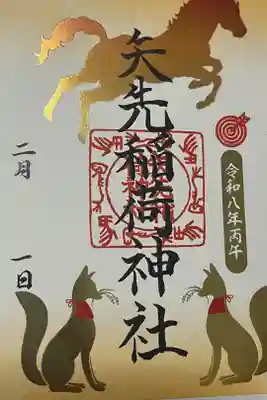 令和八年丙午
矢先稲荷神社
二月
一日